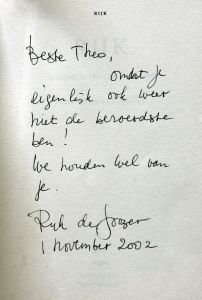 RIJK
Beste Theo,
omdat je
eigenlijk ook weer
niet de beroerdste
ben!
We houden wel van
je.
Rijk de Gooyer
1 november 2002